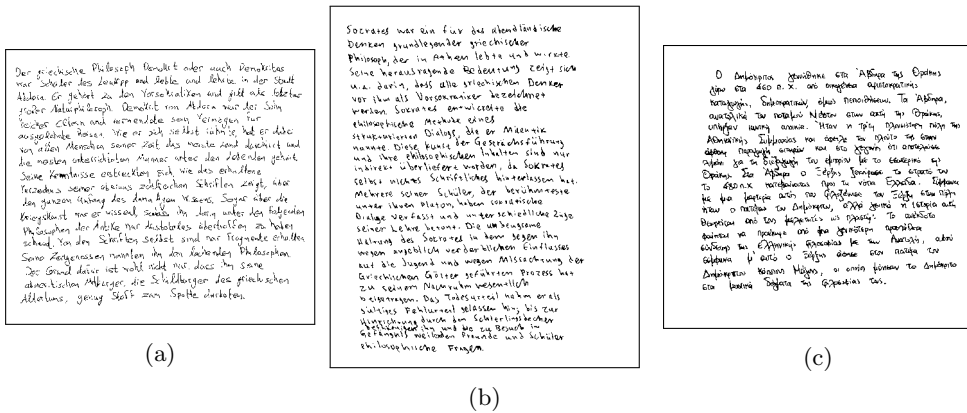 Der griechische Philosoph Demokrit oder auch Demokritos
war Schüler des Leukipp und lebte und lehrte in der Stadt
Abdera. Er gehört zu den Vorsokratikern und gilt als letzter
großer Naturphilosoph. Demokrit von Abdera war der Sohn
reicher Eltern und verwendete sein Vermögen für
ausgedehnte Reisen. Wie er sich selbst rühmte, hat er
von allen Menschen seiner Zeit das meiste Land durchirrt und
die meisten unterrichteten Männer unter den lebenden gehört
Seine Kenntnisse erstreckten sich, wie das erhaltene
Verzeichnis seiner überaus zahlreichen Schriften zeigt, über
den ganzen Umfang des damaligen Wissens. Sogar über die
Kriegskunst war er wissend, ihn darin unter den folgenden
Philosophen der Antike nur Aristoteles übertroffen zu haben
scheint. Von den Schriften selbst sind nur Fragmente erhalten
Seine Zeitgenossen nannten ihn den lachenden Philosophen
Der Grund dafür ist wohl nicht nur, dass ihm seine
abderitischen Mitbürger, die Schildbürger des griechischen
Altertums, genug Stoff zum Spotte darboten.
(a)
Socrates war ein für das abendländische
Denken grundlegender griechischer
Philosoph, der in Athen lebte und wirkte
Seine herausragende Bedeutung zeigt sich
u.a. darin, dass alle griechischen Denker
vor ihm als Vorsokraniker bezeichnet
werden. Sokrates entwickelte die
philosophische Methode eines
strukturierten Dialogs, die er Mäeutik
nannte. Diese Kunst der Gesprächsführung
und ihre philosophischen Inhalten sind nur
indirekt überliefert worden, da Sokrates
selbst nichts Schriftliches hinterlassen hat.
Mehrere seiner Schüler, der berühmteste
unter ihnen Platon, haben sokratische
Dialoge verfasst und unterschiedliche Züge
seiner Lehre betont. Die unbeugsame
Haltung des Socrates in dem gegen ihn
wegen angeblich verderblichen Einflusses
auf die Jugend und wegen Missachtung der
Griechischen Götter geführten Prozess hat
zu seinem Nachruhm wesentlich
beigetragen. Das Todesurteil nahm er als
gültiges Fehlurteil gelassen hin; bis zur
Hinrichtung durch den Schierlingsbecher
beschäftigten ihn und die zu Besuch im
Gefängnis weilenden Freunde und Schüler
philosophische Fragen.
(b)
Ο Δημόκριτος γεννήθηκε στα Άβδηρα της Θράκης
γύρω στα 460 π.Χ. από οικογένεια αριστοκρατικής
καταγωγής, δημοκρατικών, όμως πεποιθήσεων. Τα Άβδηρα,
ανατολικά του ποταμού Νέστου στην ακτή της Θράκης,
υπήρξαν ιωνική αποικία. Ήταν η τρίτη πλουσιότερη πόλη της
Αθηναϊκής Συμμαχίας και όφειλε τον πλούτο της στην
παραγωγή σιταριού και στο γεγονός ότι αποτελούσε
λιμάνι για τη διεξαγωγή του εμπορίου με το εσωτερικό της
Θράκης. Στα Άβδηρα ο Ξέρξης ξεκούρασε το στρατό του
το 480 π.Χ. κατεβαίνοντας προς τη νότια Ελλάδα. Σύμφωνα
με μια μαρτυρία αυτός που φιλοξένησε τον Ξέρξη στην πόλη
ήταν ο πατέρας του Δημόκριτου, αλλά γενικά η ιστορία αυτή
θεωρείται από τους μελετητές ως πλαστή. Το ανέκδοτο
φαίνεται να προέκυψε από μια γενικότερη προσπάθεια
σύνδεσης της ελληνικής φιλοσοφίας με την Ανατολή, αφού
σύμφωνα μ' αυτό ο Ξέρξης άφησε στον πατέρα του
Δημόκριτου κάποιους Μάγους, οι οποίοι μύησαν το Δημόκριτο
στα μυστικά δόγματα της φιλοσοφίας τους.
(c)